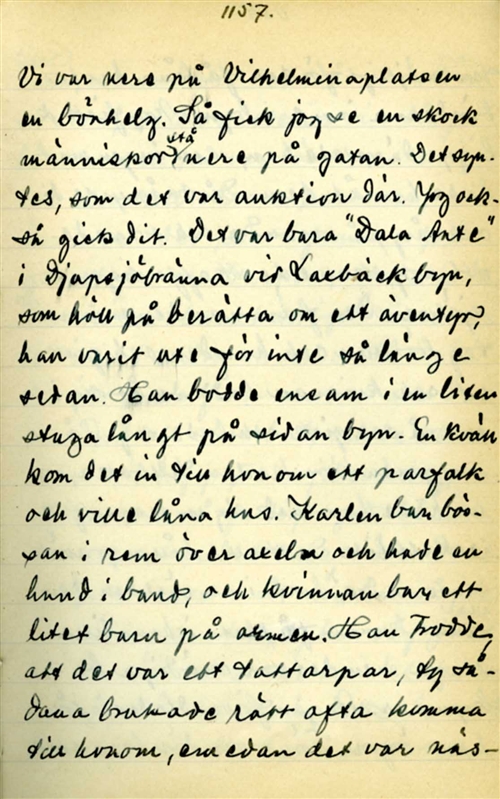 1157.
Vi var nere på Vilhelminaplatsen
en bönhelg. Så fick jag se en skock
människor stå nere på gatan. Det syn-
tes, som det var auktion där. Jag ock-
så gick dit. Det var bara "Dala Ante"
i Djapsjöbränna vid Laxbäck byn,
som höll på berätta om ett äventyr,
han varit ute för inte så länge
sedan. Han bodde ensam i en liten
stuga långt på sidan byn. En kväll
kom det in till honom ett parfolk
och ville låna hus. Karlen bar bös-
san i rem över axeln och hade en
hund i band, och kvinnan bar ett
litet barn på armen. Han trodde,
att det var ett tattarpar, ty så-
dana brukade rätt ofta komma
till honom, emedan det var näs-